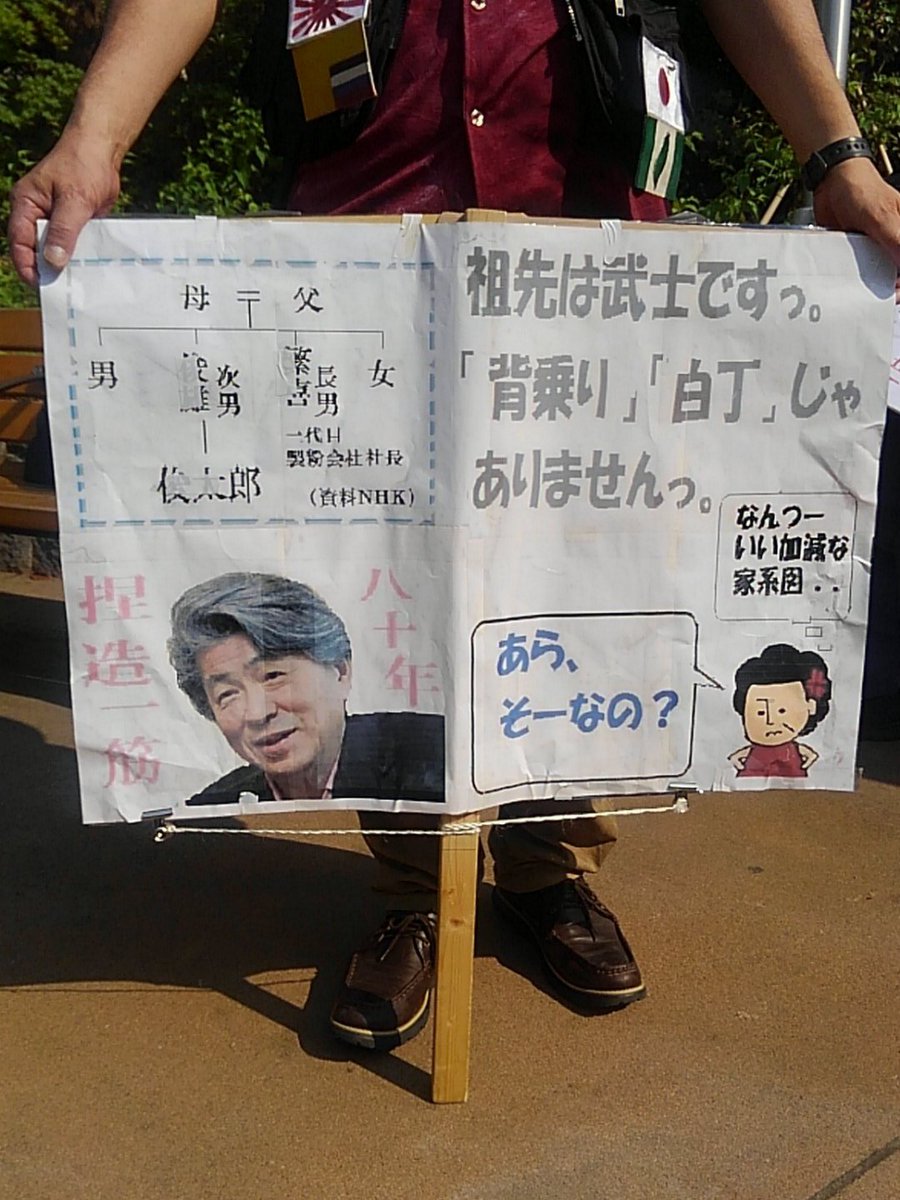 母 父
男 次男 長男 女
繁喜
一代目
製粉会社社長
俊太郎
(資料NHK)
祖先は武士ですっ。
「背乗り」「白丁」じゃ
ありませんっ。
なんつー
いい加減な
家系図..
あら、
そーなの?
八十年
捏造一筋